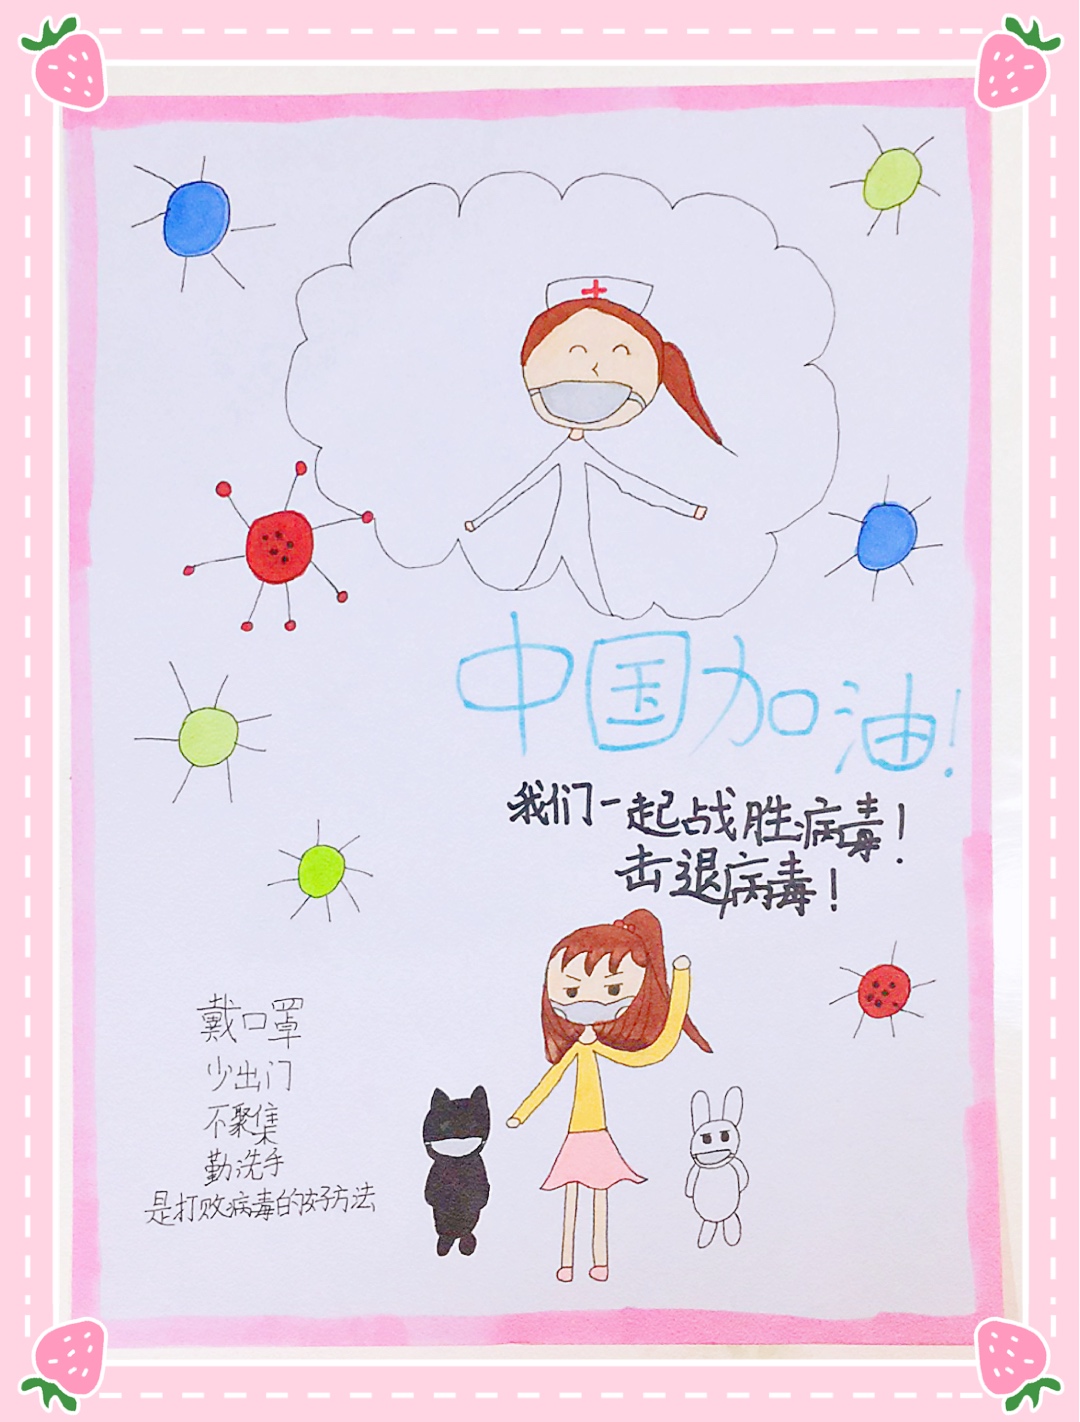 中国加油!
我们一起战胜病毒!
击退病毒!
戴口罩
少出门
不聚集
勤洗手
是打败病毒的好方法